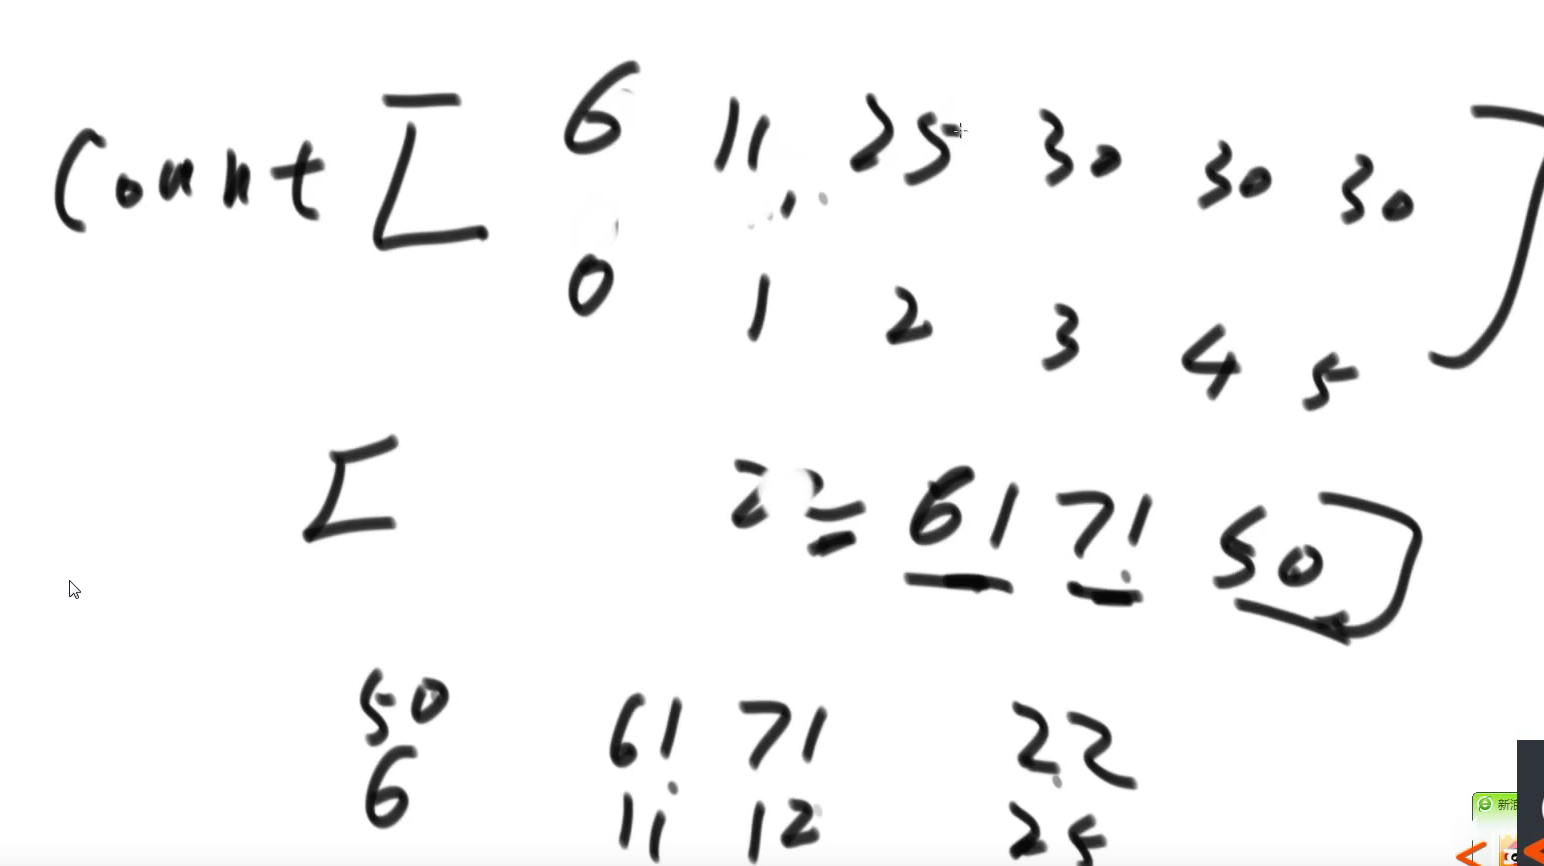 Count [ 6 11 25 30 30 30 ]
0 1 2 3 4 5
[ 22 61 71 50 ]
50 61 71 22
6 11 12 25